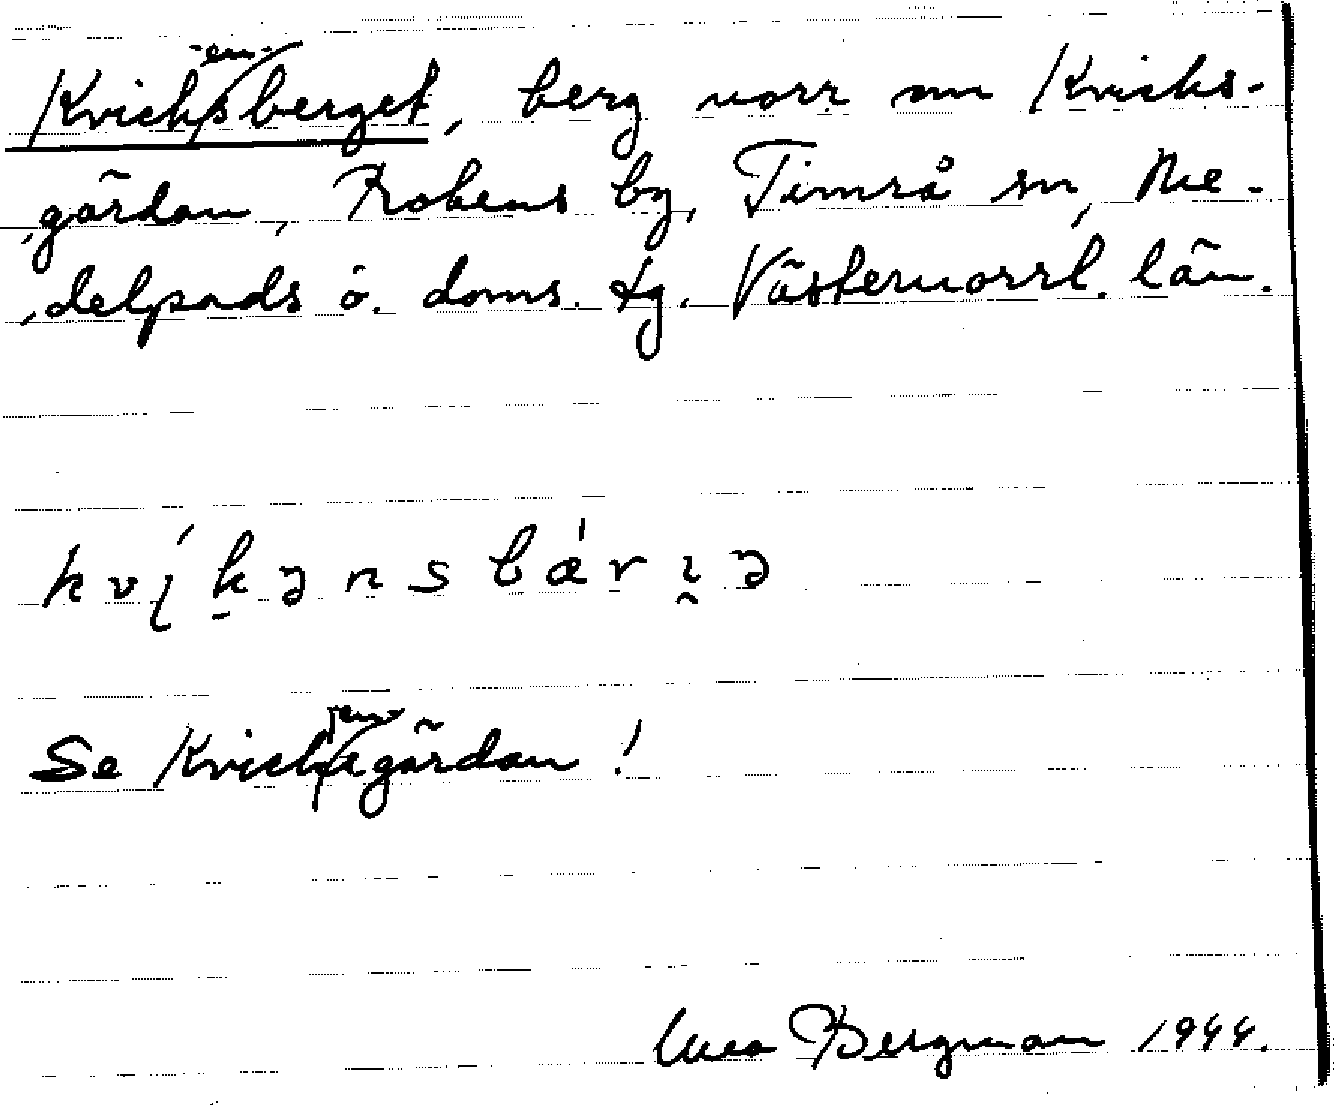 Kvickensberget, berg norr om Kvicks-
gårdan, Frötuns by, Timrå sn, Me-
delpads ö. doms. tg. Västernorrl. län.
kvíkənsbǽrɪ̰ə
Se Kvickengärdan!
Bergman 1944.